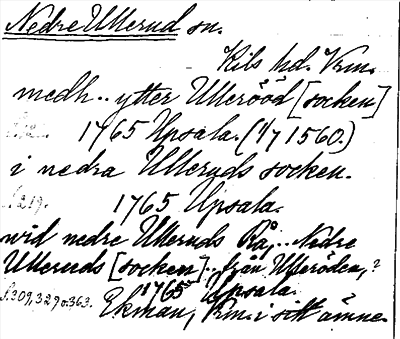 Nedre Ullerud sn.
Kils hd. Vrm.
medh.. ytter Ullerööd [socken]
1765 Upsala. (1/7 1560.)
i nedra Ulleruds socken.
N. 219. 1765 Upsala.
wid nedre Ulleruds Rå,.. Nedre
Ulleruds [socken].. från Ulleröden,?
1765 Upsala.
s. 309, 329 o. 363. Ekman, Vrm. i sitt ämne.